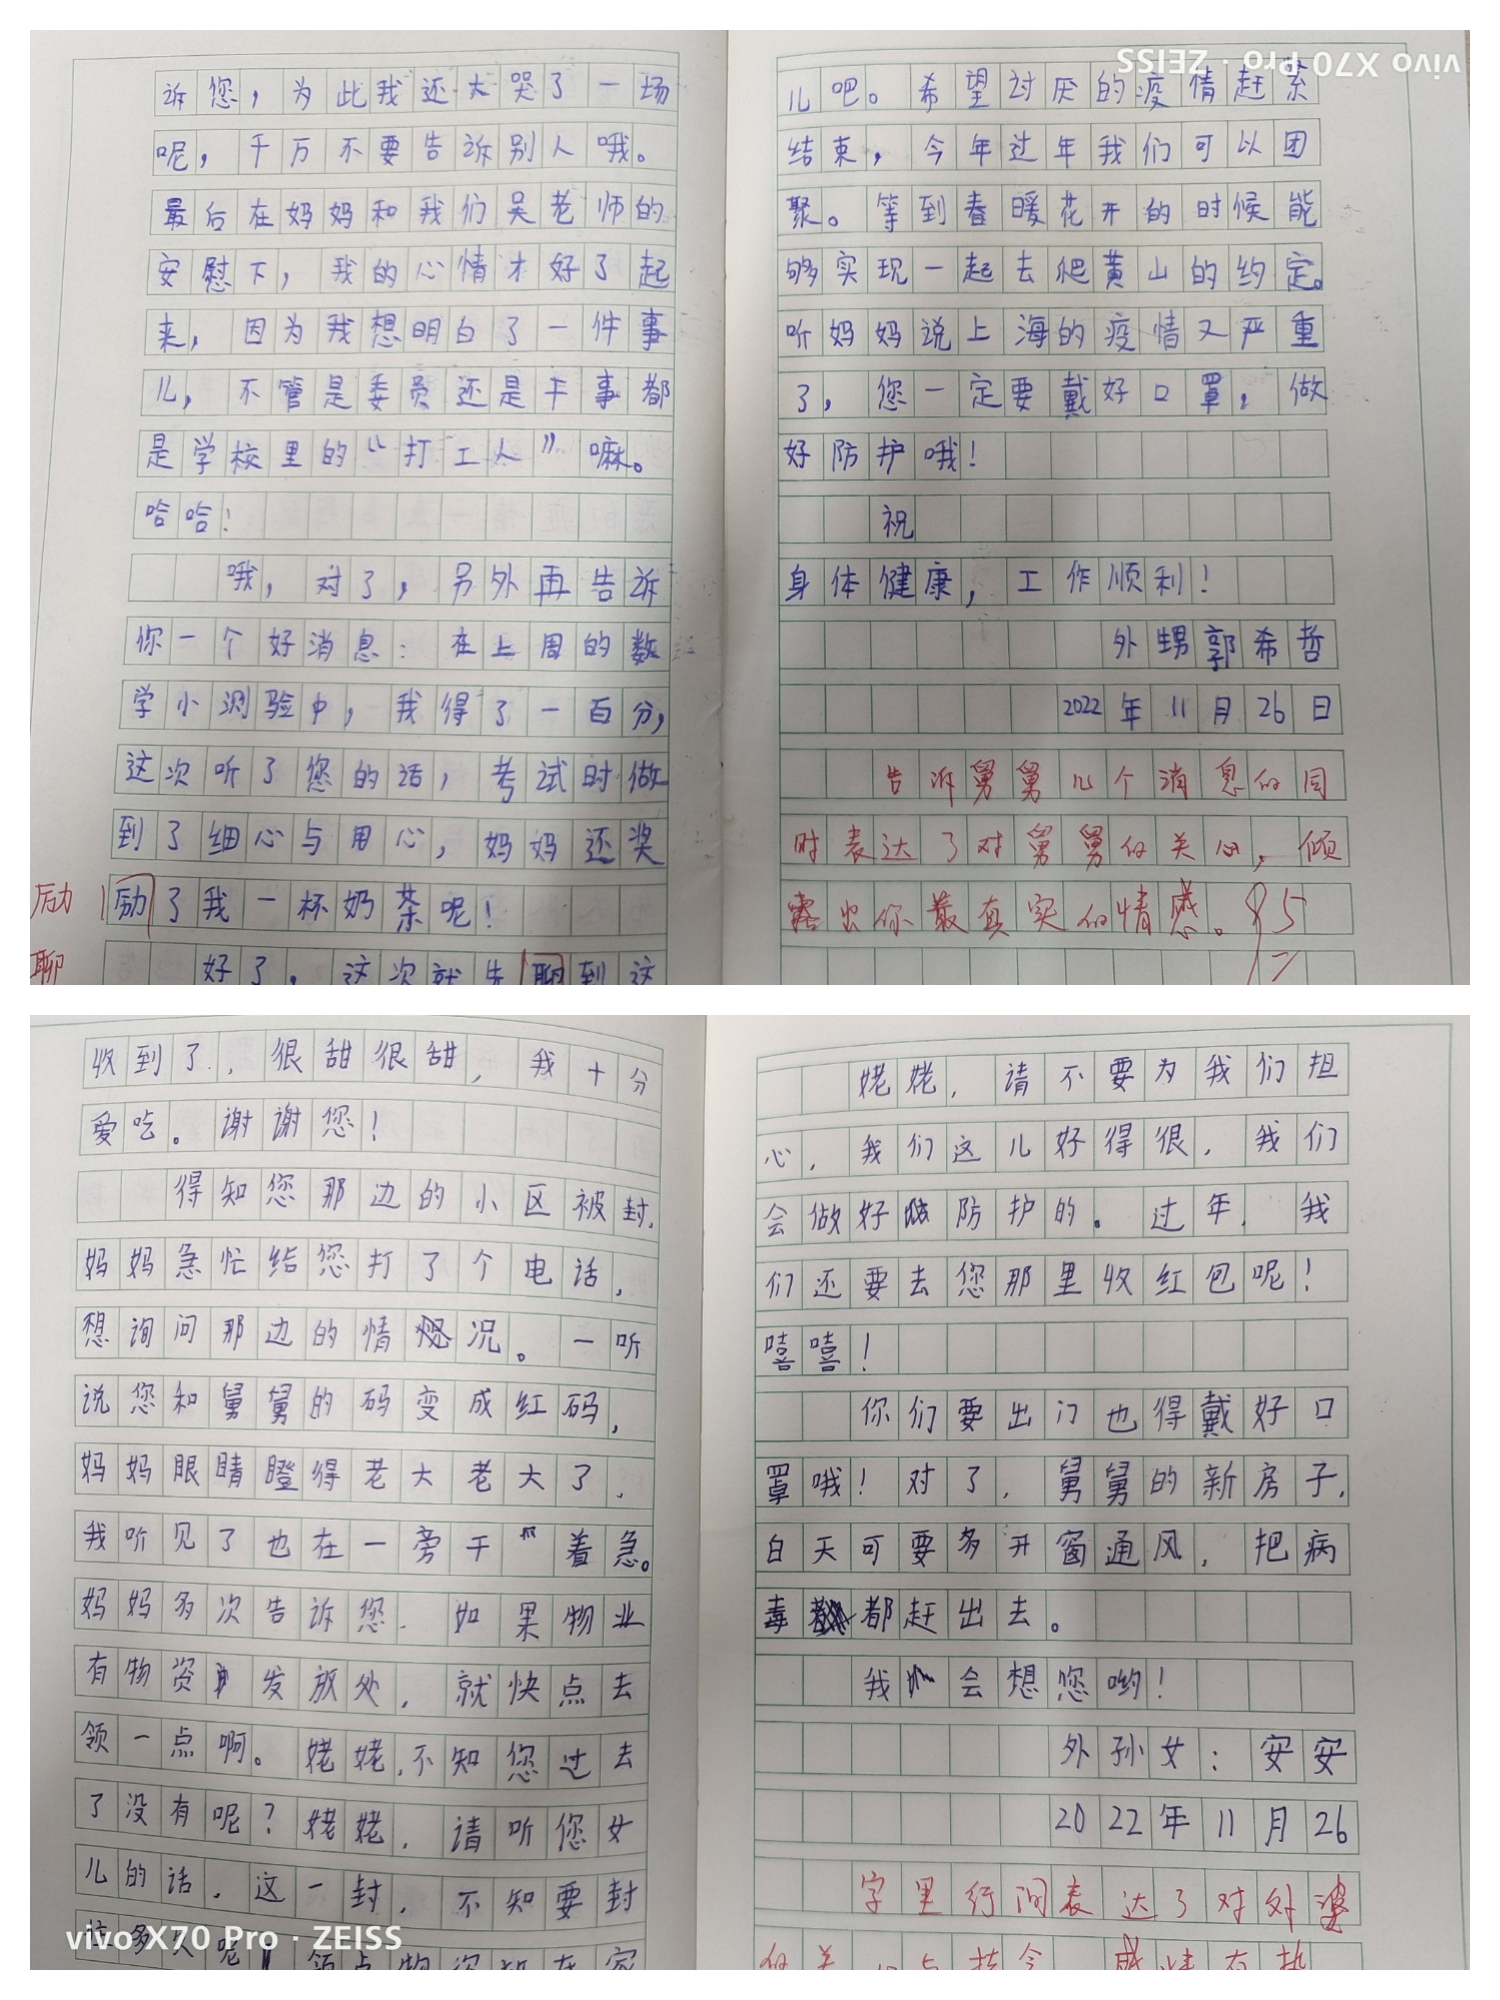 诉您，为此我还大哭了一场
呢，千万不要告诉别人哦。
最后在妈妈和我们吴老师的
安慰下，我的心情才好了起
来，因为我想明白了一件事
儿，不管是委员还是干事都
是学校里的“打工人”嘛。
哈哈！
哦，对了，另外再告诉
你一个好消息：在上周的数
学小测验中，我得了一百分，
这次听了您的话，考试时做
到了细心与用心，妈妈还奖
励 励了我一杯奶茶呢！
聊 好了，这次就先聊到这
vivo X70 Pro · ZEISS
儿吧。希望讨厌的疫情赶紧
结束，今年过年我们可以团
聚。等到春暖花开的时候能
够实现一起去爬黄山的约定。
听妈妈说上海的疫情又严重
了，您一定要戴好口罩，做
好防护哦！
祝
身体健康，工作顺利！
外甥郭希哲
2022年11月26日
告诉舅舅几个消息的同
时表达了对舅舅的关心，倾
露出你最真实的情感。95
收到了，很甜很甜，我十分
爱吃。谢谢您！
得知您那边的小区被封，
妈妈急忙给您打了个电话，
想询问那边的情况。一听
说您和舅舅的码变成红码，
妈妈眼睛瞪得老大老大了，
我听见了也在一旁干着急。
妈妈多次告诉您，如果物业
有物资发放处，就快点去
领一点啊。姥姥，不知您过去
了没有呢？姥姥，请听您女
儿的话，这一封，不知要封
多久呢！领点物资放在家
vivo X70 Pro · ZEISS
姥姥，请不要为我们担
心，我们这儿好得很，我们
会做好防护的。过年，我
们还要去您那里收红包呢！
嘻嘻！
你们要出门也得戴好口
罩哦！对了，舅舅的新房子，
白天可要多开窗通风，把病
毒都赶出去。
我会想您哟！
外孙女：安安
2022年11月26
字里行间表达了对外婆
的关心与